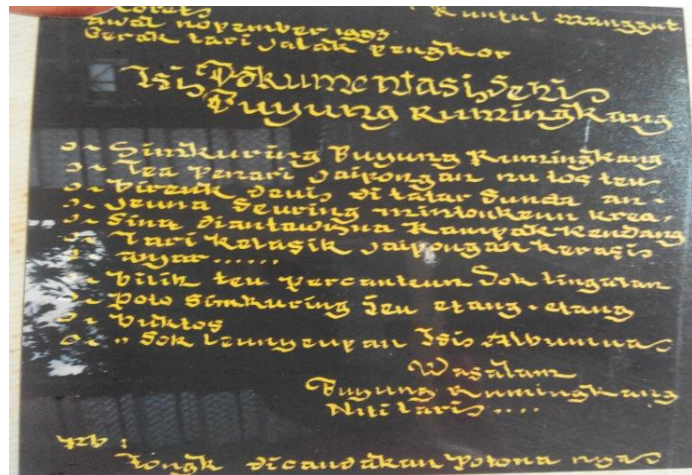 Runtul Manggut
awal november 1993
Gerak tari Jalak pengkor
Isis Dokumentasi Senis
Buyung Rumingkang
Simkuring Buyung Rumingkang
Tea penari Jaipongan nu tos teu
Bireuk Deui Di tatar Sunda an-
Jeuna Seuring mintonkeun krea-
Sina Diantawisna Rampak Kendang
Tari Kelasik Jaipongan Kerasis
anyar ......
Bilik teu percanteun Sok tingalan
Poto Simkuring Ieu etang-etang
Buktos
" Sok leunyeupan Isis Albumna
Wasalam
Buyung Rumingkang
Niti taris ....
Nb :
Tongk Dicandakan Potona nya